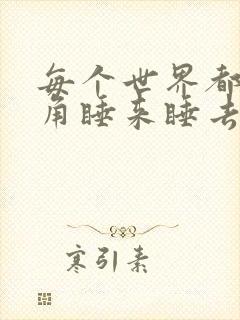 每个世界都
角睡来睡去
寒引素